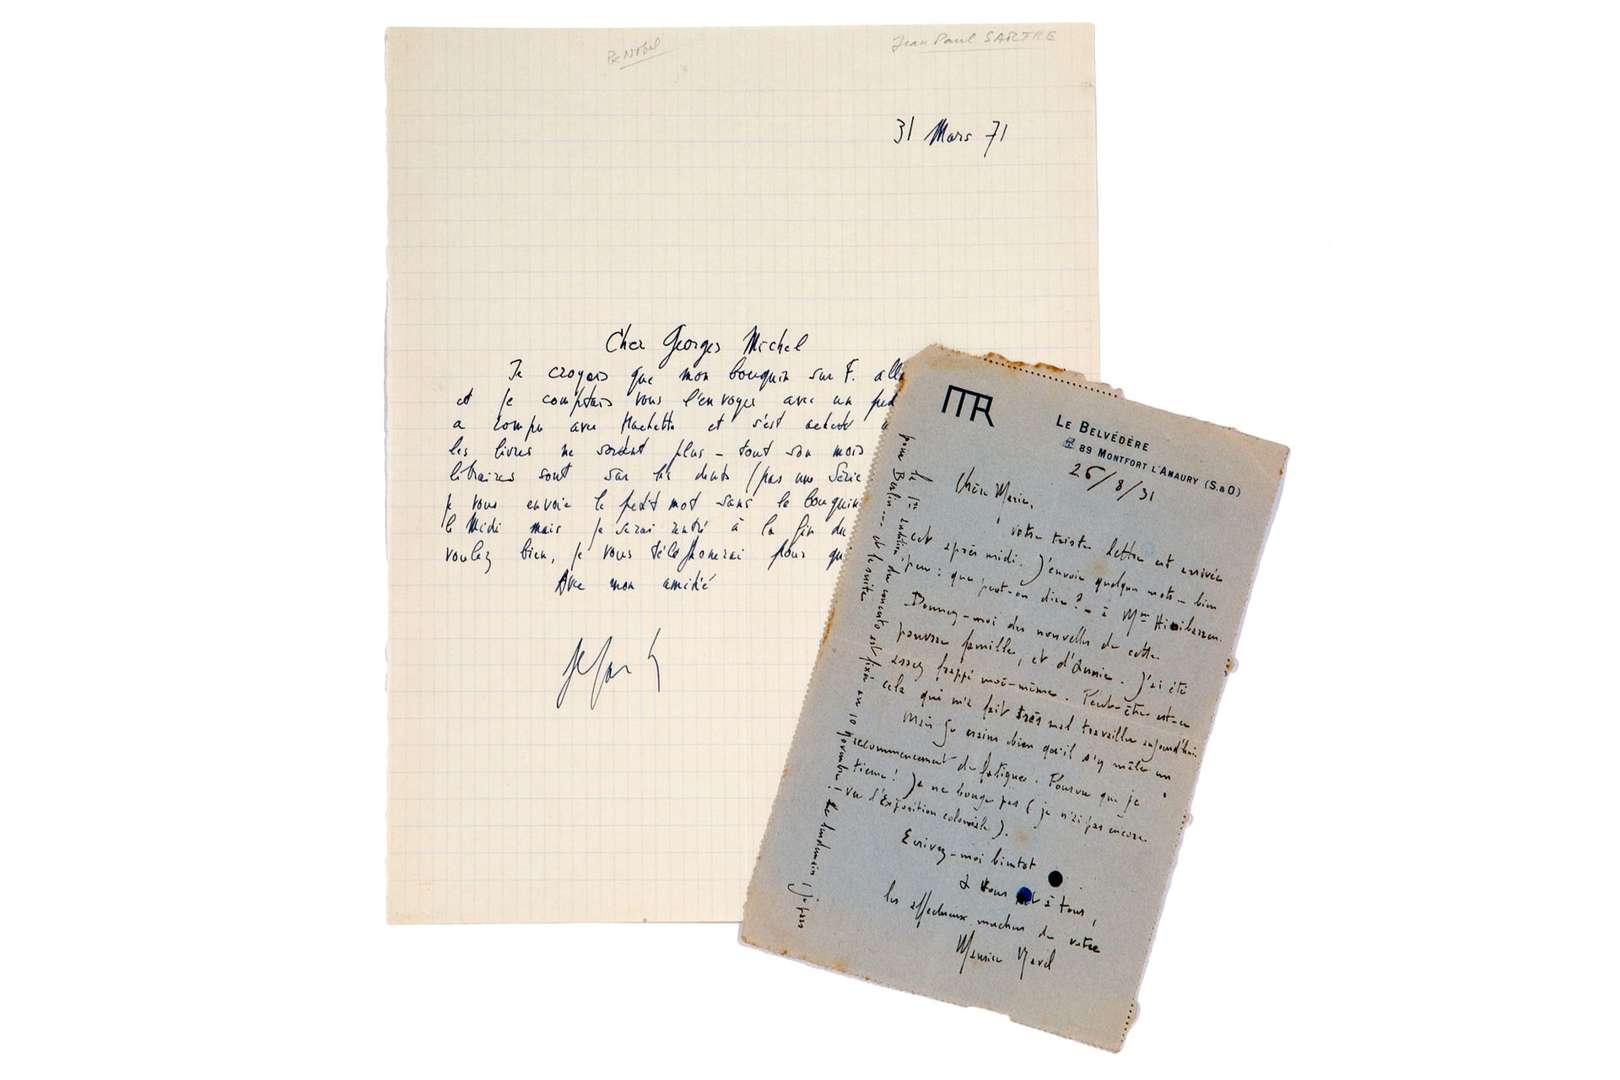 Px Nobel
Jean Paul SARTRE
31 Mars 71
Cher Georges Michel
Je croyais que mon bouquin sur F.
et je comptais vous l'envoyer avec un
a rompu avec Hachette et s'est
les livres ne sortent plus – tout son mois
libraires sont sur les dents (pas une Série
je vous envoie le petit mot sans le bouquin
le Midi mais je serai rentré à la fin du
voulez bien, je vous téléphonerai pour
Avec mon amitié
MR
LE BELVÉDÈRE
89 MONTFORT L'AMAURY (S.&O)
26/8/31
Chère Marie,
votre triste lettre est arrivée
cet après midi. J'envoie quelques mots – bien
peu : que peut-on dire ? – à Mme
Donnez-moi des nouvelles de cette
pauvre famille, et d'Annie. J'ai été
assez frappé moi-même. Peut-être est-ce
cela qui m'a fait très mal travailler aujourd'hui
Mais je crains bien qu'il s'y mêle un
recommencement de fatigue. Pourvu que je
tienne ! Je ne bouge pas (je n'ai pas encore
vu l'Exposition coloniale).
Ecrivez-moi bientot
à vous et à tous,
les affectueux machins de votre
Maurice Ravel
la 1re audition du concerto est fixée au 10 novembre ! Le lendemain, je pars
pour Berlin.... et la suite